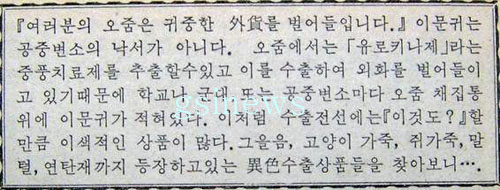 『여러분의 오줌은 귀중한 外貨를 벌어들입니다.』 이문귀는
공중변소의 낙서가 아니다. 오줌에서는 「유로키나제」라는
중풍치료제를 추출할수있고 이를 수출하여 외화를 벌어들이
고 있기때문에 학교나 군대 또는 공중변소마다 오줌 채집통
위에 이문귀가 적혀있다. 이처럼 수출전선에는『이것도?』할
만큼 이색적인 상품이 많다. 그을음, 고양이 가죽, 쥐가죽, 말
털, 연탄재까지 등장하고있는 異色수출상품들을 찾아보니….
gsinews